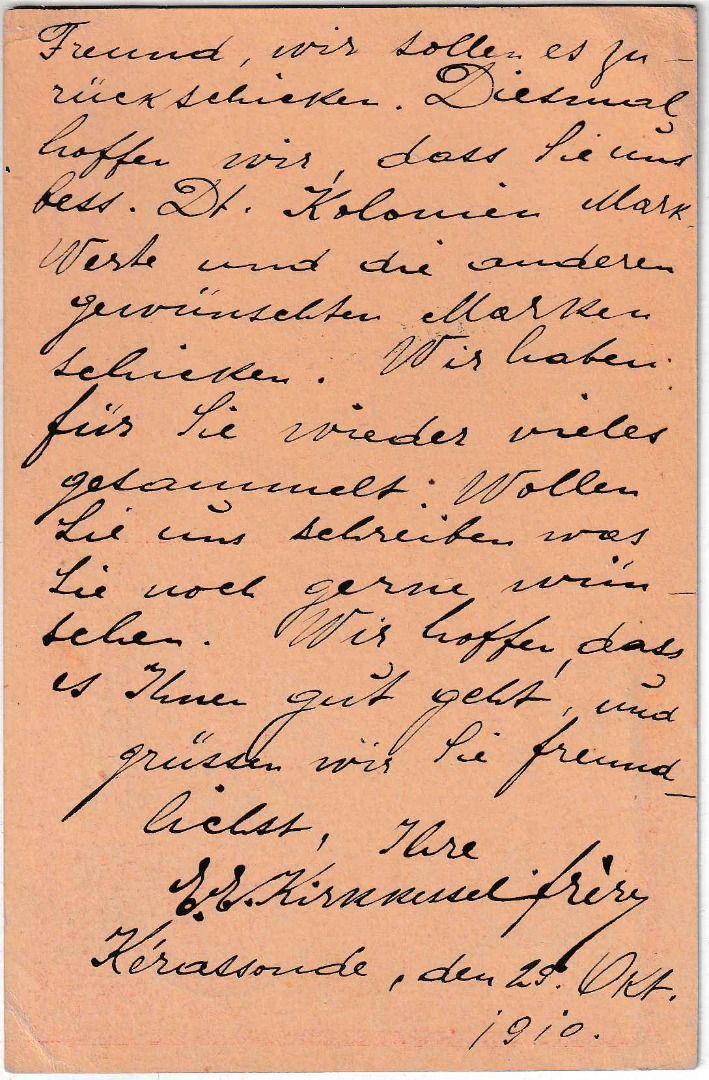 Freund, wir sollen es zu-
rückschicken. Diesmal
hoffen wir, dass Sie uns
bess. Dt. Kolonien Mark-
Werte und die anderen
gewünschten Marken
schicken. Wir haben
für Sie wieder vieles
gesammelt. Wollen
Sie uns schreiben was
Sie noch gerne wün-
schen. Wir hoffen, dass
es Ihnen gut geht, und
grüssen wir Sie freund-
lichst, Ihre
E.E.
Kérassonde, den 29. Okt.
1910.